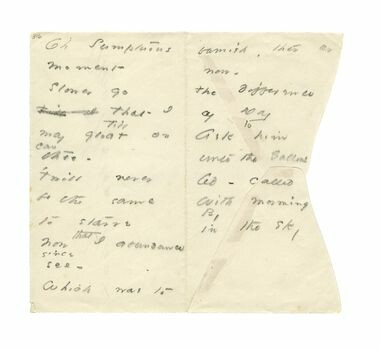 Oh Sumptuous
moment
Slower go
that I
Till
may gloat on
can
thee -
'twill never
be the same
to starve
that
now I abundance
since
see -
Which was to
famish, then
now -
the difference
of Day
to
Ask him
unto the Gallows
led - called
with morning
By
in the sky